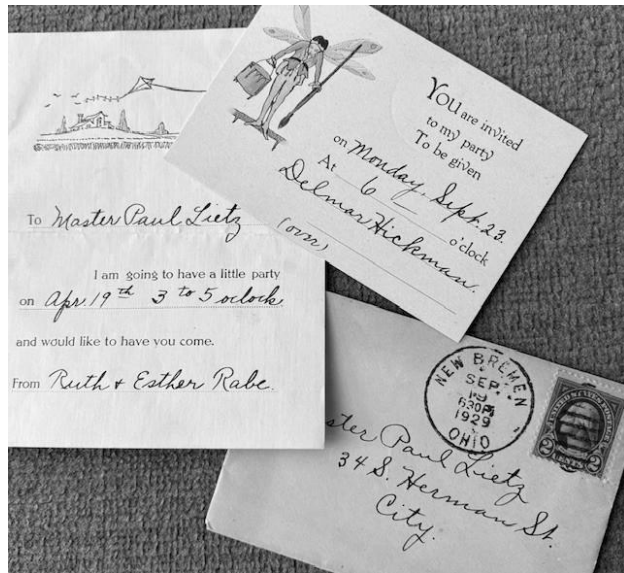 To Master Paul Lietz
I am going to have a little party
on Apr. 19th 3 to 5 oclock
and would like to have you come.
From Ruth & Esther Rabe.
You are invited
to my party
To be given
on Monday, Sept. 23.
At 6 — o'clock
Delmar Hickman.
(over)
NEW BREMEN
SEP.
19
630PM
1929
OHIO
UNITED STATES POSTAGE
2 CENTS 2
ster Paul Lietz
34 S. Herman St.
City.